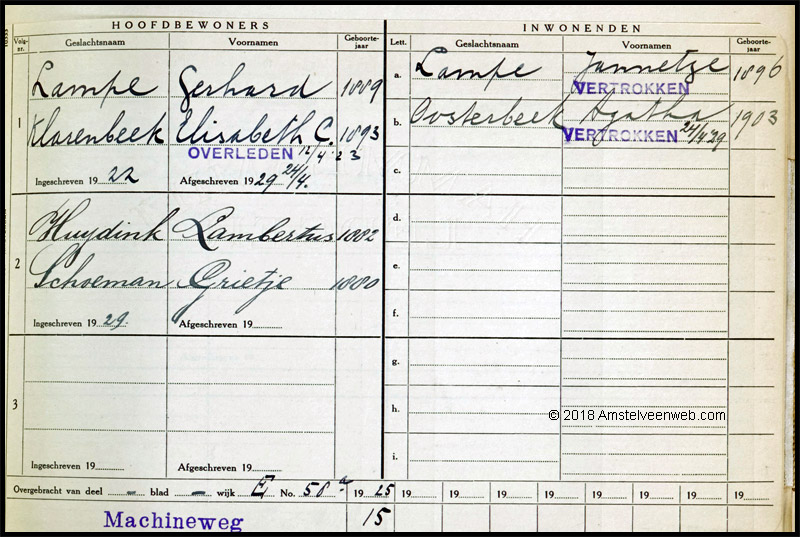 HOOFDBEWONERS
Volg-nr. Geslachtsnaam Voornamen Geboorte-jaar
1
Lampe Gerhard 1889
Klarenbeek Elisabeth C. 1893
OVERLEDEN 12/4 23
Ingeschreven 19 22 Afgeschreven 19 29 24/4.
2
Huydink Lambertus 1882
Schoeman Grietje 1880
Ingeschreven 19 29. Afgeschreven 19
3
Ingeschreven 19 Afgeschreven 19
INWONENDEN
Lett. Geslachtsnaam Voornamen Geboorte-jaar
a. Lampe Jannetze 1896
VERTROKKEN
b. Oosterbeek Agatha 1903
VERTROKKEN 24/4 29
c.
d.
e.
f.
g.
h.
© 2018 Amstelveenweb.com
i.
Overgebracht van deel - blad - wijk E No. 58 a 19 25 19 19 19 19 19 19 19 19
Machineweg 15